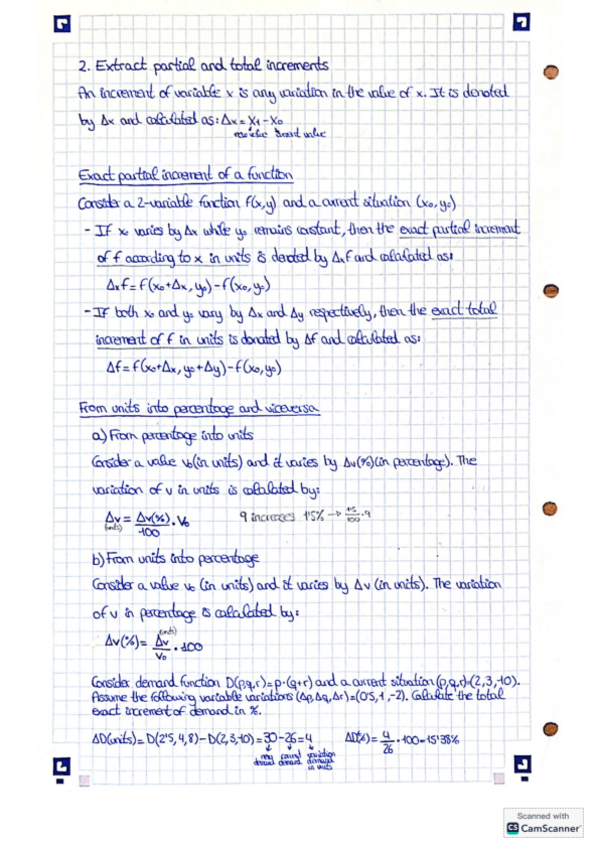 2. Extract partial and total increments
An increment of variable x is any variation in the value of x. It is denoted
by Δx and calculated as: Δx = x₁ - x₀
value
Exact partial increment of a function
Consider a 2-variable function f(x,y) and a current situation (x₀, y₀)
- If x₀ varies by Δx while y₀ remains constant, then the exact partial increment
of f according to x in units is denoted by Δₓf and calculated as:
Δₓf = f(x₀+Δx, y₀) - f(x₀, y₀)
- If both x₀ and y₀ vary by Δx and Δy respectively, then the exact total
increment of f in units is donated by Δf and calculated as:
Δf = f(x₀+Δx, y₀+Δy) - f(x₀, y₀)
From units into percentage and viceversa
a) From percentage into units
Consider a value v₀ (in units) and it varies by Δv(%) (in percentage). The
variation of v in units is calculated by:
Δv (units) = Δv(%)/100 · v₀ 9 increases 15% → 15/100 · 9
b) From units into percentage
Consider a value v₀ (in units) and it varies by Δv (in units). The variation
of v in percentage is calculated by:
Δv(%) = Δv (units)/v₀ · 100
Consider demand function D(p,q,r)=p·(q+r) and a current situation (p,q,r)=(2,3,10).
Assume the following variable variations (Δp,Δq,Δr)=(0'5,1,-2). Calculate the total
exact increment of demand in %.
ΔD(units) = D(2'5,4,8) - D(2,3,10) = 30 - 26 = 4 ΔD(%) = 4/26 · 100 = 15'38%
new current variation
demand demand demand
in units
Scanned with
CS CamScanner